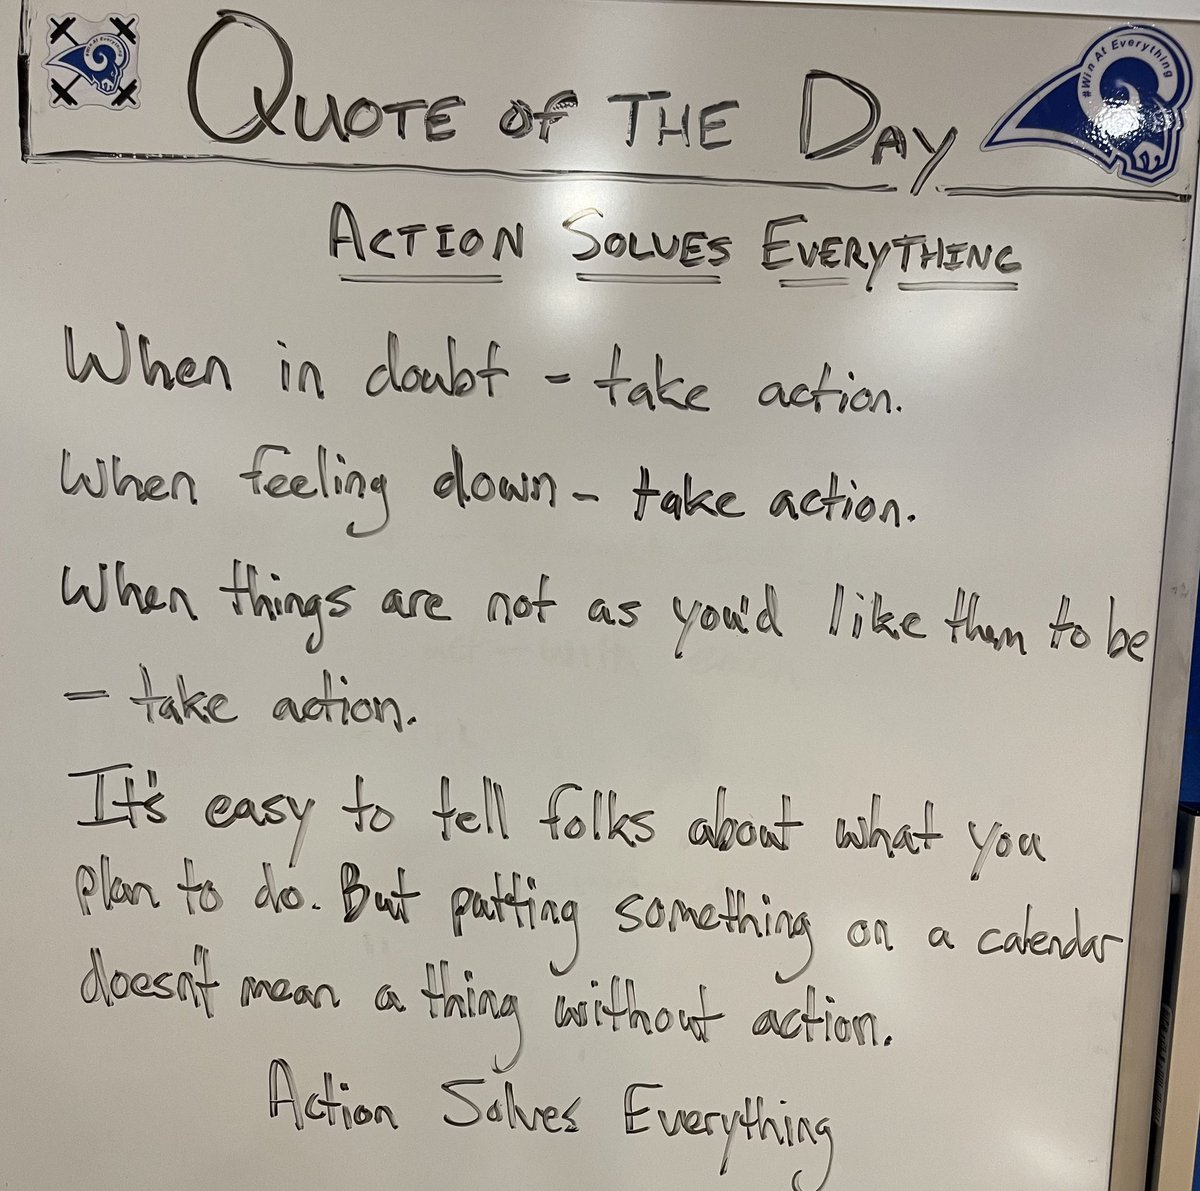 #Win At Everything
QUOTE OF THE DAY
#Win At Everything
ACTION SOLVES EVERYTHING
When in doubt - take action.
When feeling down - take action.
When things are not as you'd like them to be
- take action.
It's easy to tell folks about what you
plan to do. But putting something on a calendar
doesn't mean a thing without action.
Action Solves Everything